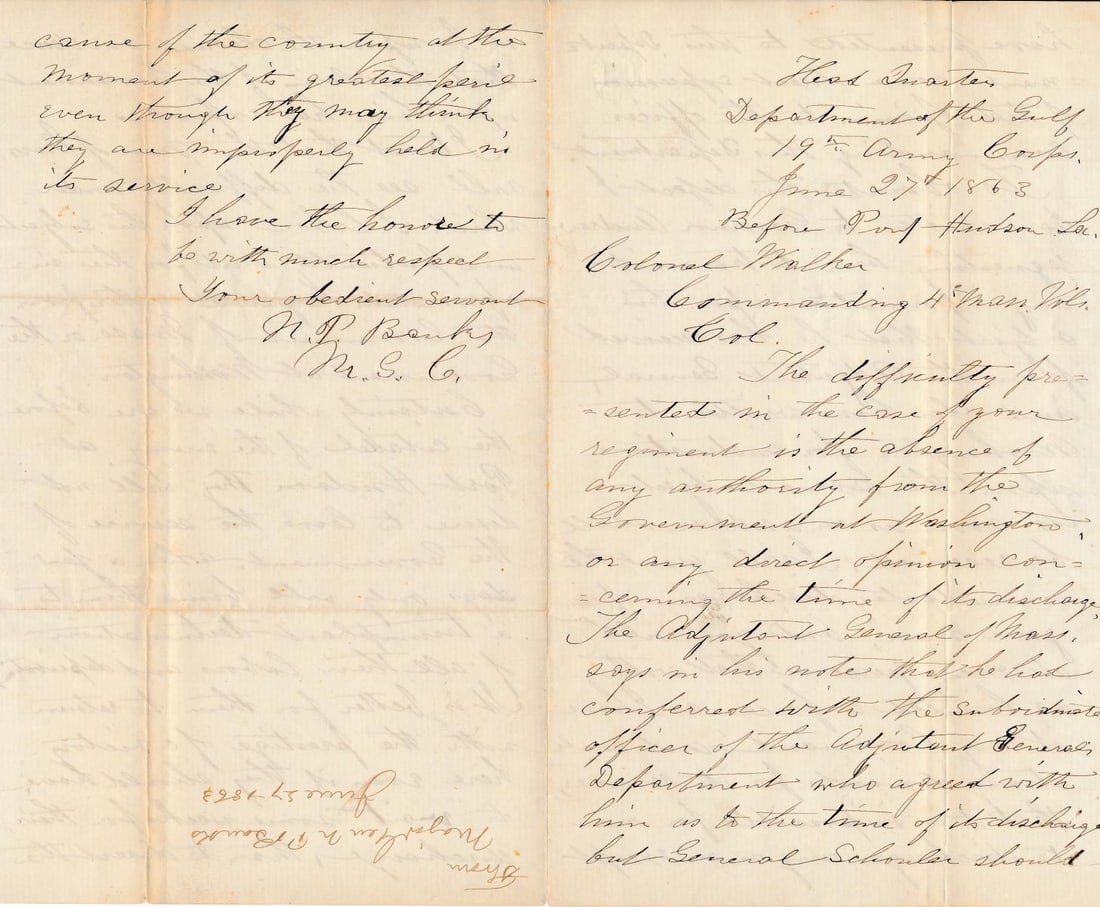 Head Quarters
Department of the Gulf
19th Army Corps.
June 27th 1863
Before Port Hudson La.
Colonel Walker
Commanding 4th Mass. Vols.
Col.
The difficulty pre=
=sented in the case of your
regiment is the absence of
any authority from the
Government at Washington,
or any direct opinion con=
=cerning the time of its discharge
The Adjutant General of Mass.
says in his note that he had
conferred with the subordinate
officer of the Adjutant Generals
Department who agreed with
him as to the time of its discharge
but General Schouler should
cause of the country at the
moment of its greatest peril
even though they may think
they are improperly held in
its service
I have the honor to
be with much respect
Your obedient servant
N. P. Banks
M. G. C.
From
Major Gen N P Banks
June 27-1863